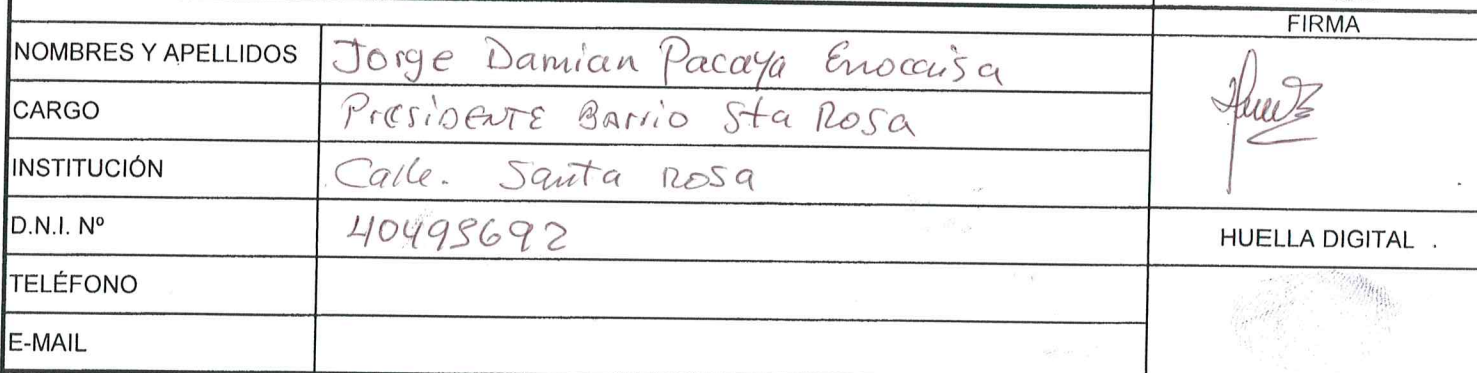 FIRMA
NOMBRES Y APELLIDOS Jorge Damian Pacaya
CARGO PresiDENTE BArrio Sta Rosa
INSTITUCIÓN Calle. Santa Rosa
D.N.I. Nº 40495692
HUELLA DIGITAL
TELÉFONO
E-MAIL